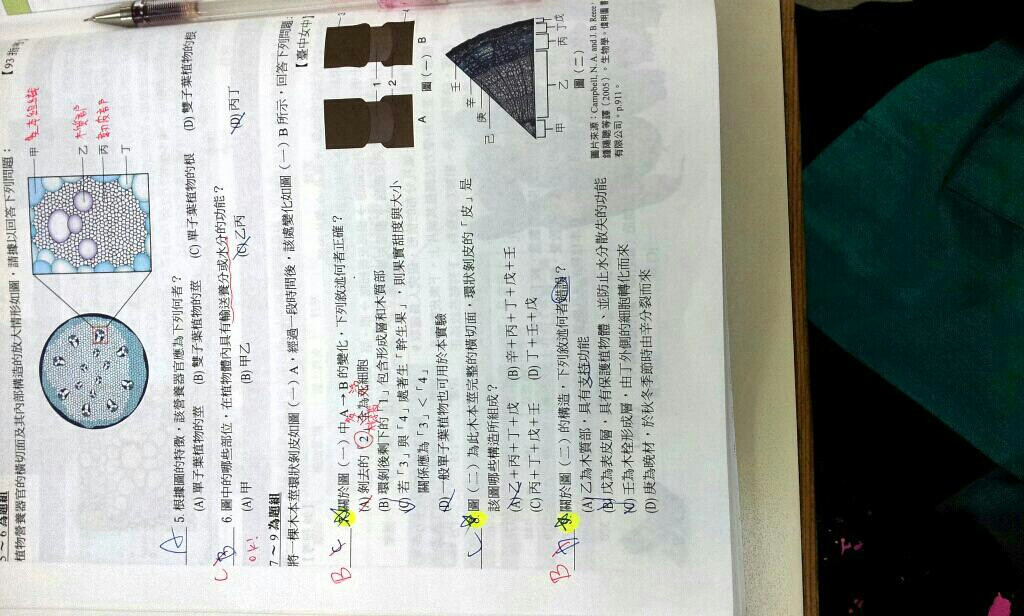 5～6 為題組
植物營養器官的橫切面及其內部構造的放大情形如圖，請據以回答下列問題：
【93 指考】
甲 基本組織
乙 木質部
丙 韌皮部
丁
A 5. 根據圖的特徵，該營養器官應為下列何者？
(A) 單子葉植物的莖 (B) 雙子葉植物的莖 (C) 單子葉植物的根 (D) 雙子葉植物的根
C B 6. 圖中的哪些部位，在植物體內具有輸送養分或水分的功能？
(A) 甲 (B) 甲乙 (C) 乙丙 (D) 丙丁
7～9 為題組
將一棵木本莖環狀剝皮如圖（一）A，經過一段時間後，該處變化如圖（一）B 所示，回答下列問題：
【臺中女中】
B 7. 關於圖（一）中 A → B 的變化，下列敘述何者正確？
(A) 剝去的「2」全為死細胞
(B) 環剝後剩下的「1」包含形成層和木質部
(C) 若「3」與「4」處著生「幹生果」，則果實甜度與大小
關係應為「3」<「4」
(D) 一般單子葉植物也可用於本實驗
1
2
3
4
A
B
圖（一）
C 8. 圖（二）為此木本莖完整的橫切面，環狀剝皮的「皮」是
該圖哪些構造所組成？
(A) 乙＋丙＋丁＋戊 (B) 辛＋丙＋丁＋戊＋壬
(C) 丙＋丁＋戊＋壬 (D) 丁＋壬＋戊
B 9. 關於圖（二）的構造，下列敘述何者錯誤？
(A) 乙為木質部，具有支持功能
(B) 戊為表皮層，具有保護植物體、並防止水分散失的功能
(C) 壬為木栓形成層，由丁外側的細胞轉化而來
(D) 庚為晚材，於秋冬季節時由辛分裂而來
己
庚
辛
壬
甲
乙
丙
丁
戊
圖（二）
圖片來源：Campbell, N. A. and J. B. Reece，
鍾陽聰等譯（2005）。生物學。偉明圖書
有限公司。p.911。